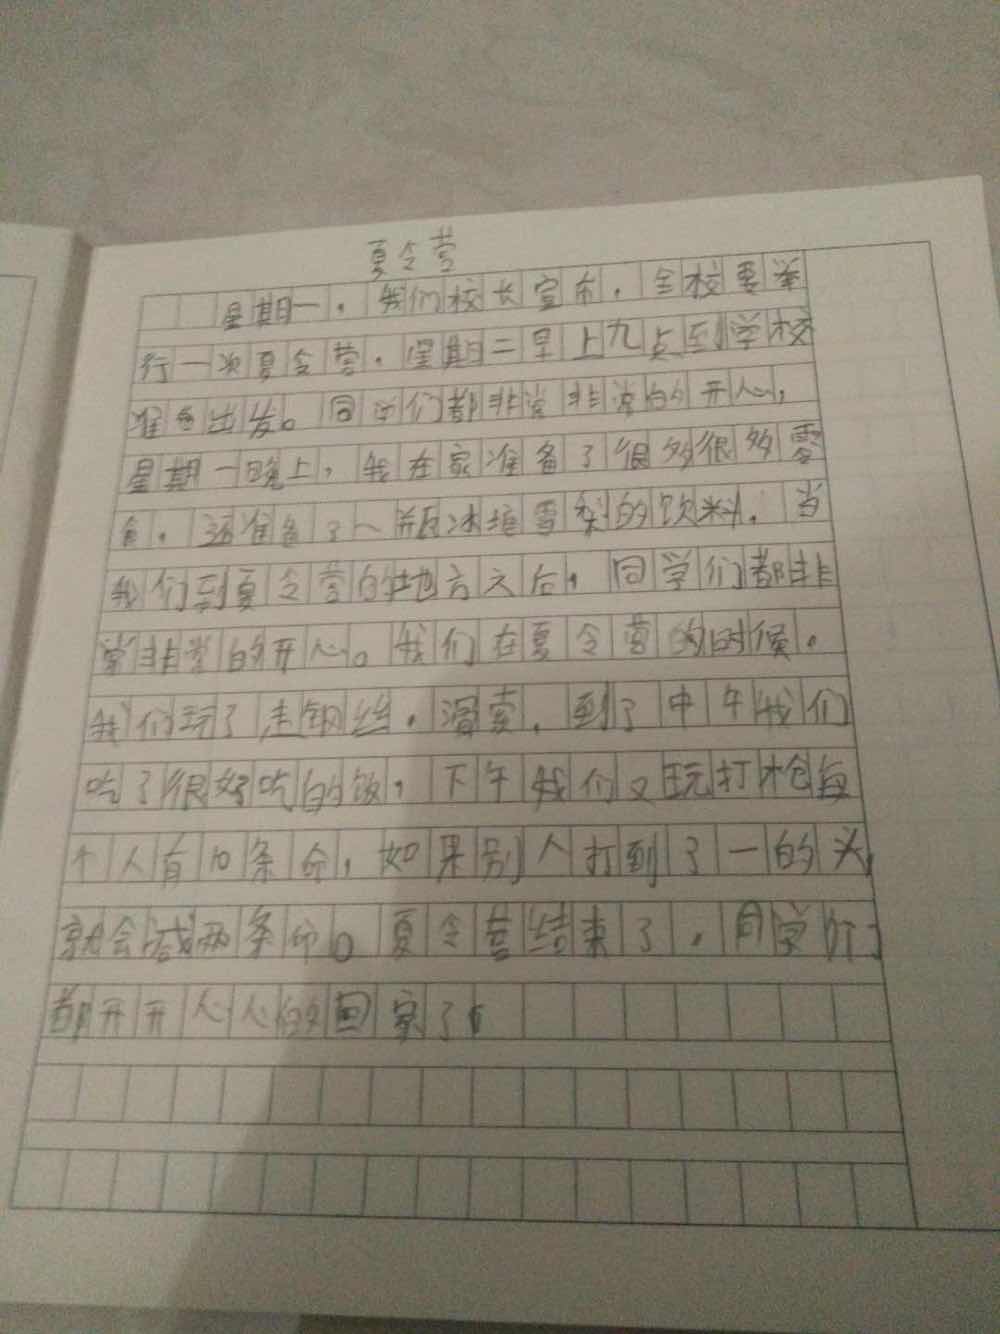 夏令营
星期一，我们校长宣布，全校要举
行一次夏令营，星期二早上九点到学校
准备出发。同学们都非常非常的开心，
星期一晚上，我在家准备了很多很多零
食，还准备了一瓶冰糖雪梨的饮料，当
我们到夏令营的地方之后，同学们都非
常非常的开心。我们在夏令营的时候，
我们玩了走钢丝，滑索，到了中午我们
吃了很好吃的饭，下午我们又玩打枪每
个人有10条命，如果别人打到了一的头，
就会减两条命。夏令营结束了，同学们
都开开心心的回家了。